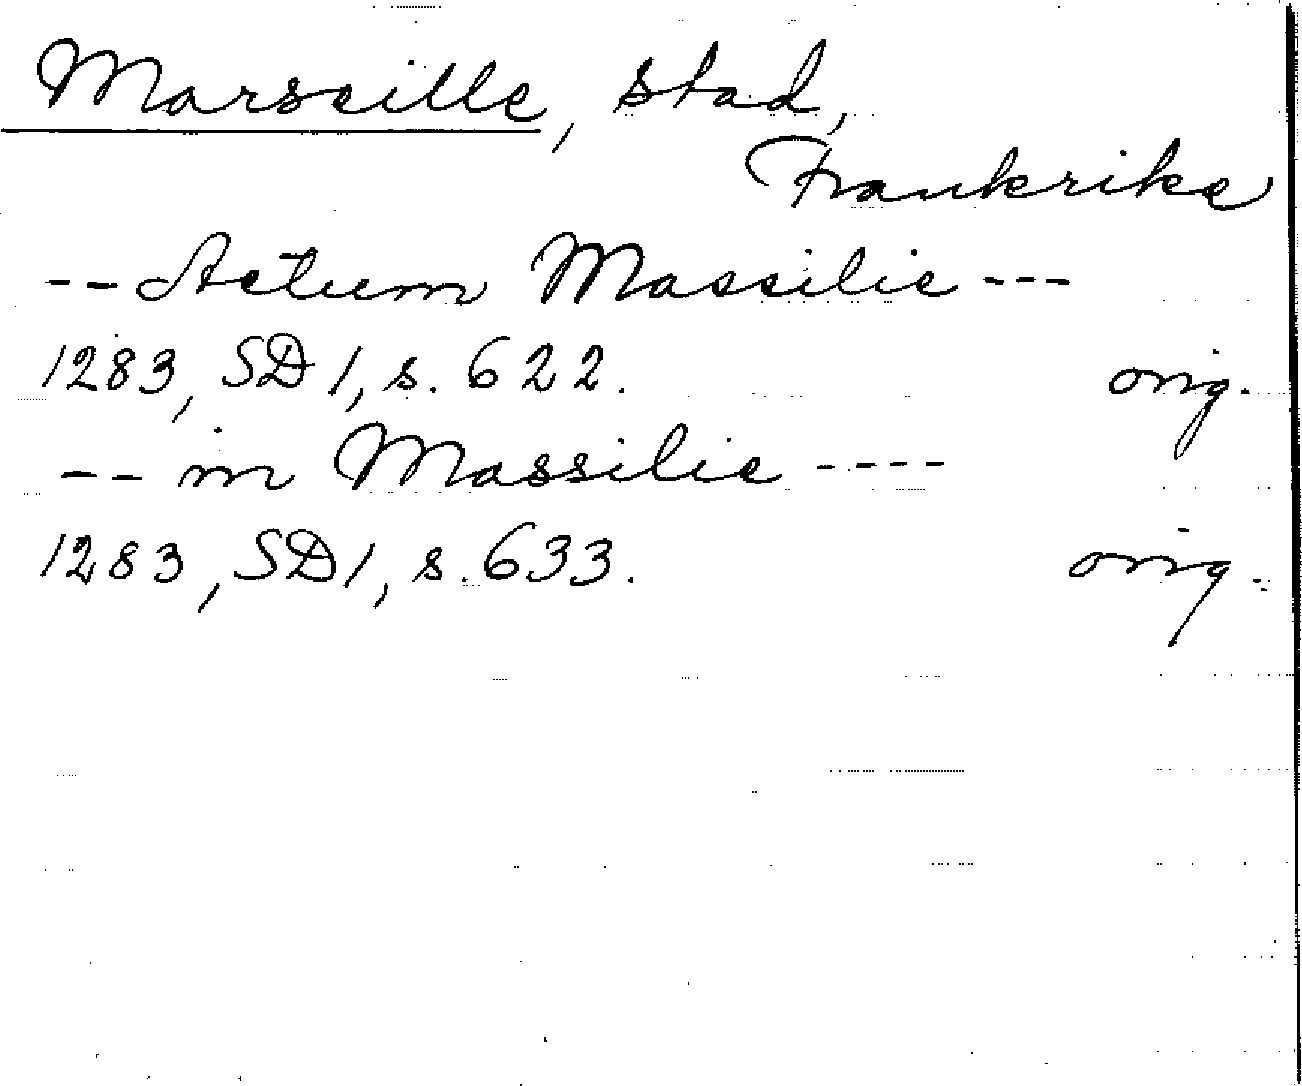 Marseille, stad,
Frankrike
-- Actum Massilie ---
1283, SD 1, s. 622. orig.
-- in Massilie ----
1283, SD 1, s. 633. orig.